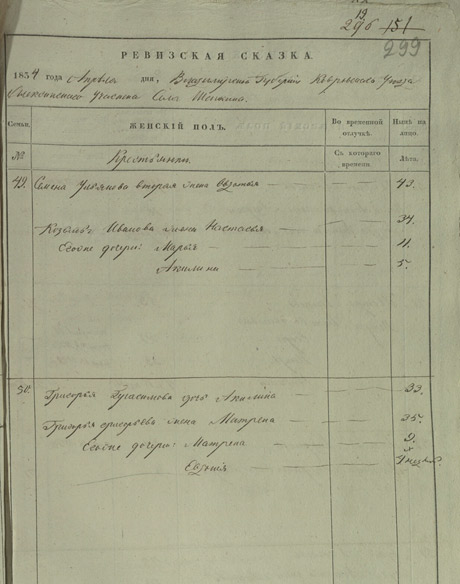 19
296 151
299
РЕВИЗСКАЯ СКАЗКА.
1834 года Апреля дня, Владимирской Губернии Ковровскаго Уезда
Участка Села
Семьи. ЖЕНСКІЙ ПОЛЪ. Во временной отлучкѣ. Нынѣ на лицо.
№ Крестьянъ. Съ котораго времени. Лѣта.
49. Семена Ульянова вторая жена Авдотья 43.
Козьмы Иванова жена Настасья 34.
Ево же дочери: Марья 11.
Акилина 5.
50. Григорья Герасимова дочь Акилина 33.
Григорья жена Матрена 35.
Ево же дочери: Матрена 9.
Евдокія